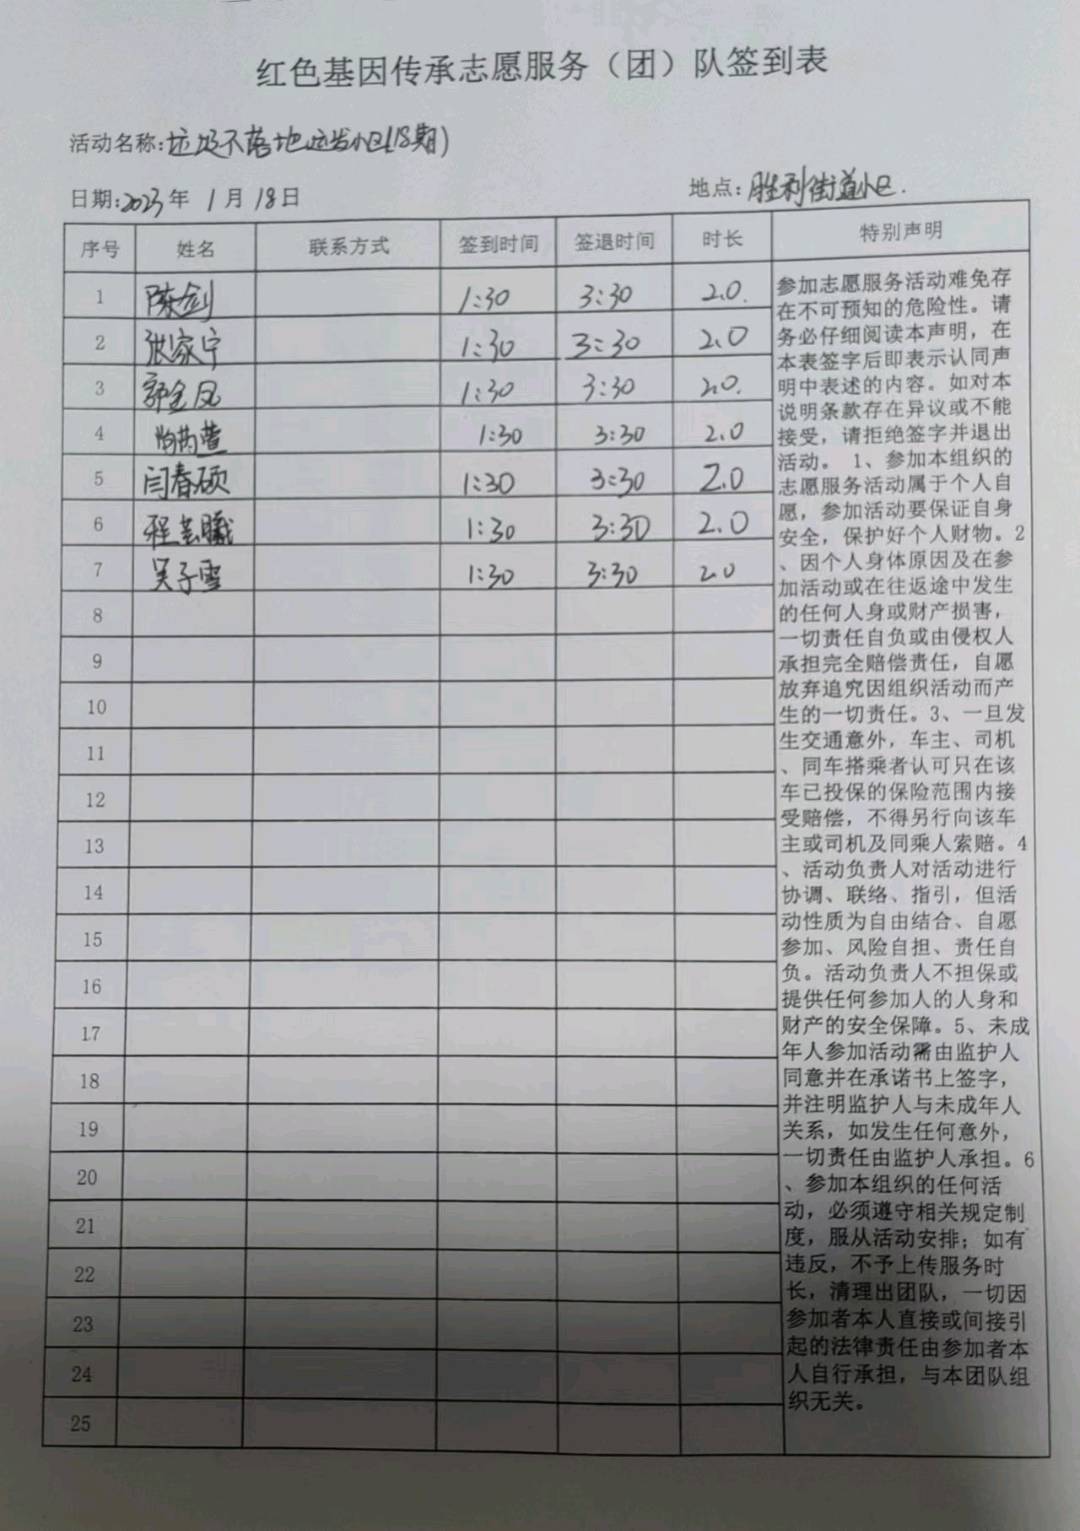 红色基因传承志愿服务（团）队签到表
活动名称:垃圾不落地运发小区(18期)
日期:2023年 1月18日
地点:胜利街道小区.
序号 姓名 联系方式 签到时间 签退时间 时长 特别声明
1 陈剑 1:30 3:30 2.0.
2 张家宁 1:30 3:30 2.0
3 郭金凤 1:30 3:30 2.0.
4 1:30 3:30 2.0
5 闫春硕 1:30 3:30 2.0
6 程芸曦 1:30 3:30 2.0
7 吴子雪 1:30 3:30 2.0
8
9
10
11
12
13
14
15
16
17
18
19
20
21
22
23
24
25
参加志愿服务活动难免存
在不可预知的危险性。请
务必仔细阅读本声明，在
本表签字后即表示认同声
明中表述的内容。如对本
说明条款存在异议或不能
接受，请拒绝签字并退出
活动。 1、参加本组织的
志愿服务活动属于个人自
愿，参加活动要保证自身
安全，保护好个人财物。2
、因个人身体原因及在参
加活动或在往返途中发生
的任何人身或财产损害，
一切责任自负或由侵权人
承担完全赔偿责任，自愿
放弃追究因组织活动而产
生的一切责任。3、一旦发
生交通意外，车主、司机
、同车搭乘者认可只在该
车已投保的保险范围内接
受赔偿，不得另行向该车
主或司机及同乘人索赔。4
、活动负责人对活动进行
协调、联络、指引，但活
动性质为自由结合、自愿
参加、风险自担、责任自
负。活动负责人不担保或
提供任何参加人的人身和
财产的安全保障。5、未成
年人参加活动需由监护人
同意并在承诺书上签字，
并注明监护人与未成年人
关系，如发生任何意外，
一切责任由监护人承担。6
、参加本组织的任何活
动，必须遵守相关规定制
度，服从活动安排；如有
违反，不予上传服务时
长，清理出团队，一切因
参加者本人直接或间接引
起的法律责任由参加者本
人自行承担，与本团队组
织无关。